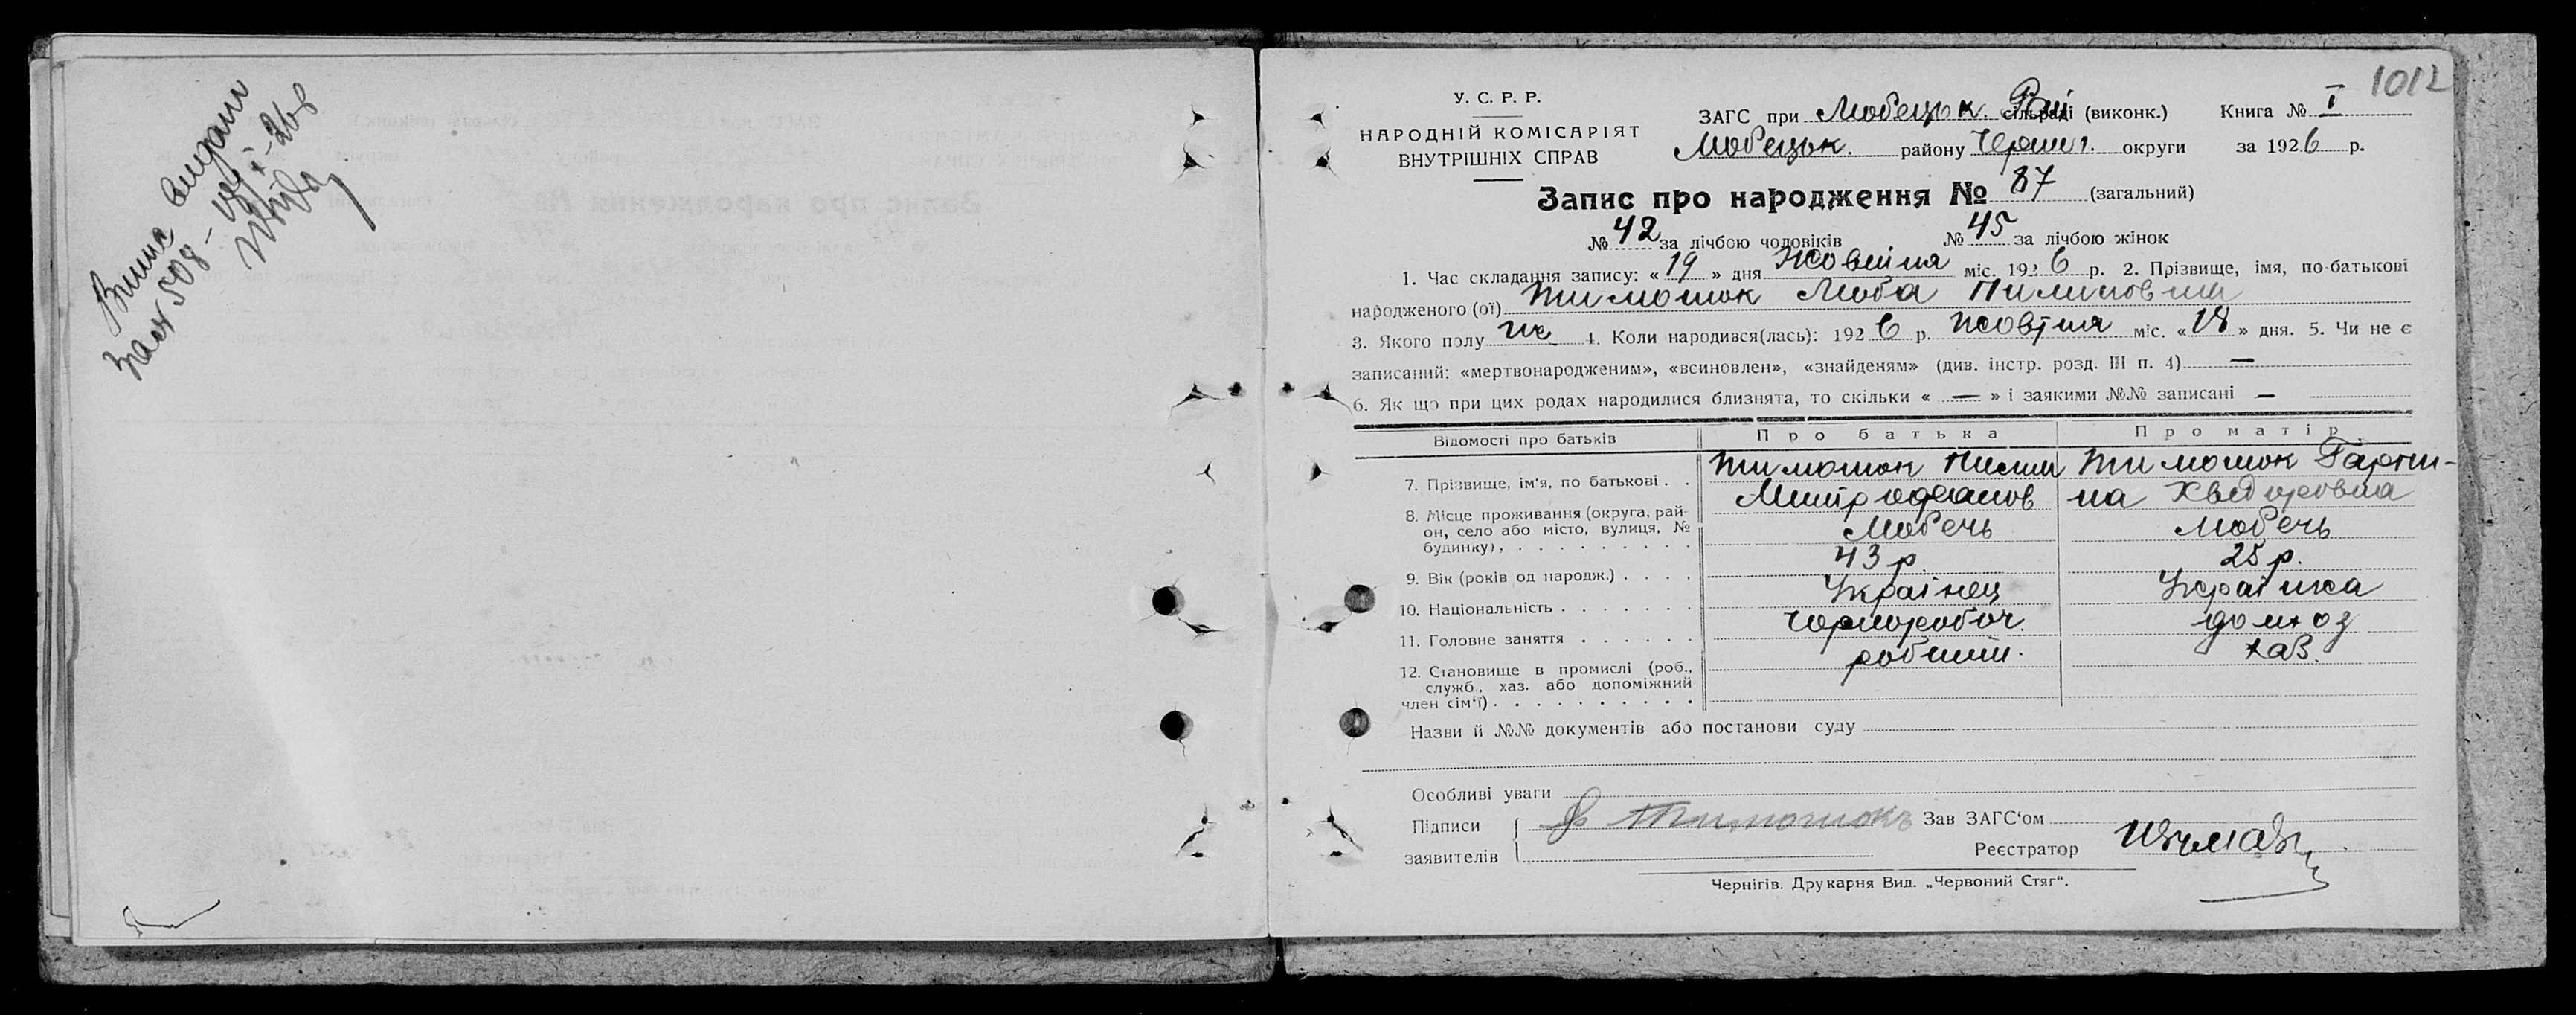 Виписк видани
за № 508 – 19/X–26 р
1012
У. С. Р. Р.
НАРОДНІЙ КОМІСАРІЯТ
ВНУТРІШНІХ СПРАВ
ЗАГС при Любецьк. Рай сільраді (виконк.) Книга № I
Любецьк. району Черниг. округи за 1926 р.
Запис про народження № 87 (загальний)
№ 42 за лічбою чоловіків № 45 за лічбою жінок
1. Час складання запису: «19» дня Жовтня міс. 1926 р. 2. Прізвище, імя, по-батькові
народженого (ої) Тимошок Люба Пилиповна
3. Якого полу ж 4. Коли народився(лась): 1926 р. Жовтня міс. «18» дня. 5. Чи не є
записаний: «мертвонародженим», «всиновлен», «знайденям» (див. інстр. розд. III п. 4) —
6. Як що при цих родах народилися близнята, то скільки « — » і заякими №№ записані —
Відомості про батьків Про батька Про матір
7. Прізвище, ім'я, по батькові . . Тимошок Пилип Митрофанов Тимошок Гарпина Хведоровна
8. Місце проживання (округа, рай-
он, село або місто, вулиця, №
будинку), . . . . . . . . . Любечь Любечь
9. Вік (років од народж.) . . . . 43 р. 25 р.
10. Національність . . . . . . . Українец Українка
11. Головне заняття . . . . . . Чорноробоч. домхоз
12. Становище в промислі (роб.,
служб., хаз. або допоміжний
член сім'ї) . . . . . . . . . . робітни. хаз.
Назви й №№ документів або постанови суду
Особливі уваги
Підписи Тимошокъ Зав ЗАГС'ом
заявителів Реєстратор
Чернігів. Друкарня Вид. „Червоний Стяг“.